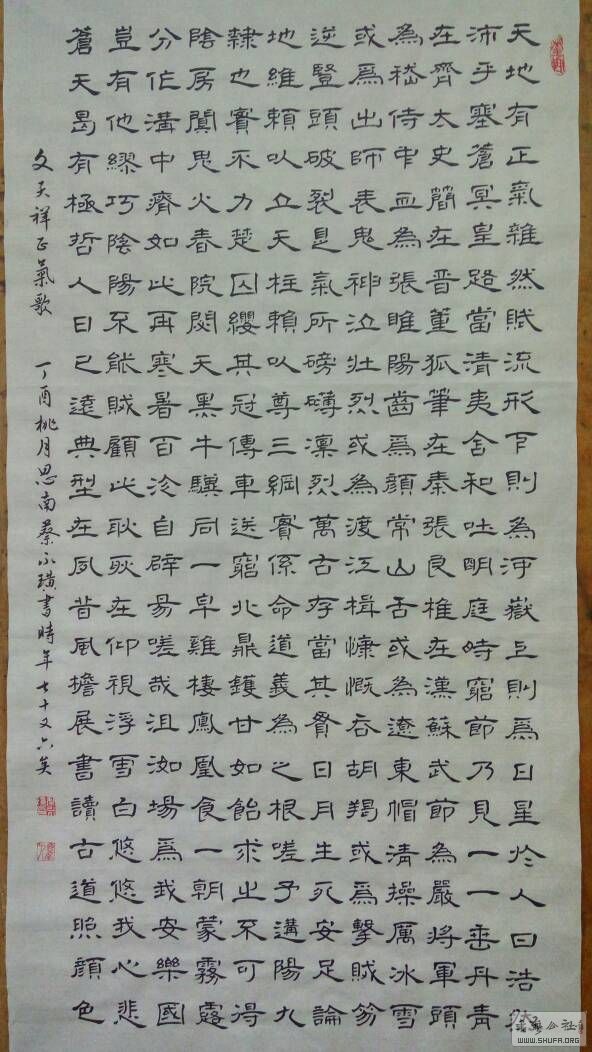 天地有正氣雜然賦流形下則為河嶽上則為日星於人曰浩然
沛乎塞蒼冥皇路當清夷含和吐明庭時窮節乃見一一垂丹青
在齊太史簡在晉董狐筆在秦張良椎在漢蘇武節為嚴將軍頭
為嵇侍中血為張睢陽齒為顏常山舌或為遼東帽清操厲冰雪
或為出師表鬼神泣壯烈或為渡江楫慷慨吞胡羯或為擊賊笏
逆豎頭破裂是氣所磅礴凜烈萬古存當其貫日月生死安足論
地維賴以立天柱賴以尊三綱實係命道義為之根嗟予遘陽九
隸也實不力楚囚纓其冠傳車送窮北鼎鑊甘如飴求之不可得
陰房闃鬼火春院閟天黑牛驥同一皁雞棲鳳凰食一朝蒙霧露
分作溝中瘠如此再寒暑百沴自辟易嗟哉沮洳場為我安樂國
豈有他繆巧陰陽不能賊顧此耿耿在仰視浮雲白悠悠我心悲
蒼天曷有極哲人日已遠典型在夙昔風檐展書讀古道照顏色
文天祥正氣歌 丁酉桃月思南蔡永璜書時年七十又六矣
WWW.SHUFA.ORG